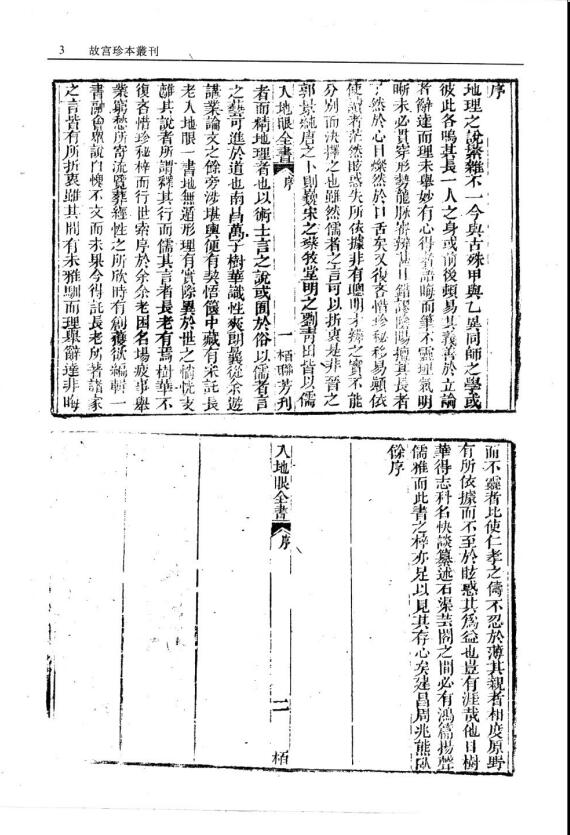 3 故宮珍本叢刊
序
地理之說繁雜不一今與古殊甲與乙異同師之學或
彼此各鳴其長一人之身或前後頻易其義善於立論
者辭達而理未舉妙有心得者語晦而筆不靈理氣明
晰未必貫穿形勢龍脈審辨甚且錯謬陰陽擅其長者
了然於心目爍然於口舌矣又復吝惜珍秘移易顧依
使讀者茫然眩惑失所依據非有聰明才辨之實不能
分別而決擇之也雖然儒者之言可以折衷是非晉之
郭景純唐之卜則巍宋之蔡牧堂明之劉青田皆以儒
入地眼全書 序 一 栢聯芳刊
者而精地理者也以術士言之說或囿於俗以儒者言
之藝可進於道也南昌萬子樹華識性爽朗曩從余遊
講業論文之餘旁涉堪輿便有契悟篋中藏有宋託長
老入地眼一書地無遁形理有實際異於世之惝恍支
離其說者所謂釋其行而儒其言者長老有焉樹華不
復吝惜珍秘梓而行世索序於余余老困名場疲事舉
業窮愁所寄流覽葬經性之所欣時有創獲欲編輯一
書融會眾說自慚不文而未果今得託長老所著諸家
之言皆有所折衷雖其間有未雅馴而理舉辭達非晦
而不靈者比使仁孝之儔不忍於薄其親者相度原野
有所依據而不至於眩惑其為益也豈有涯哉他日樹
華得志科名快談纂述石渠芸閣之間必有鴻篇揚聲
儒雅而此書之梓亦足以見其存心矣建昌周兆熊臥
餘序
入地眼全書 序 二 栢